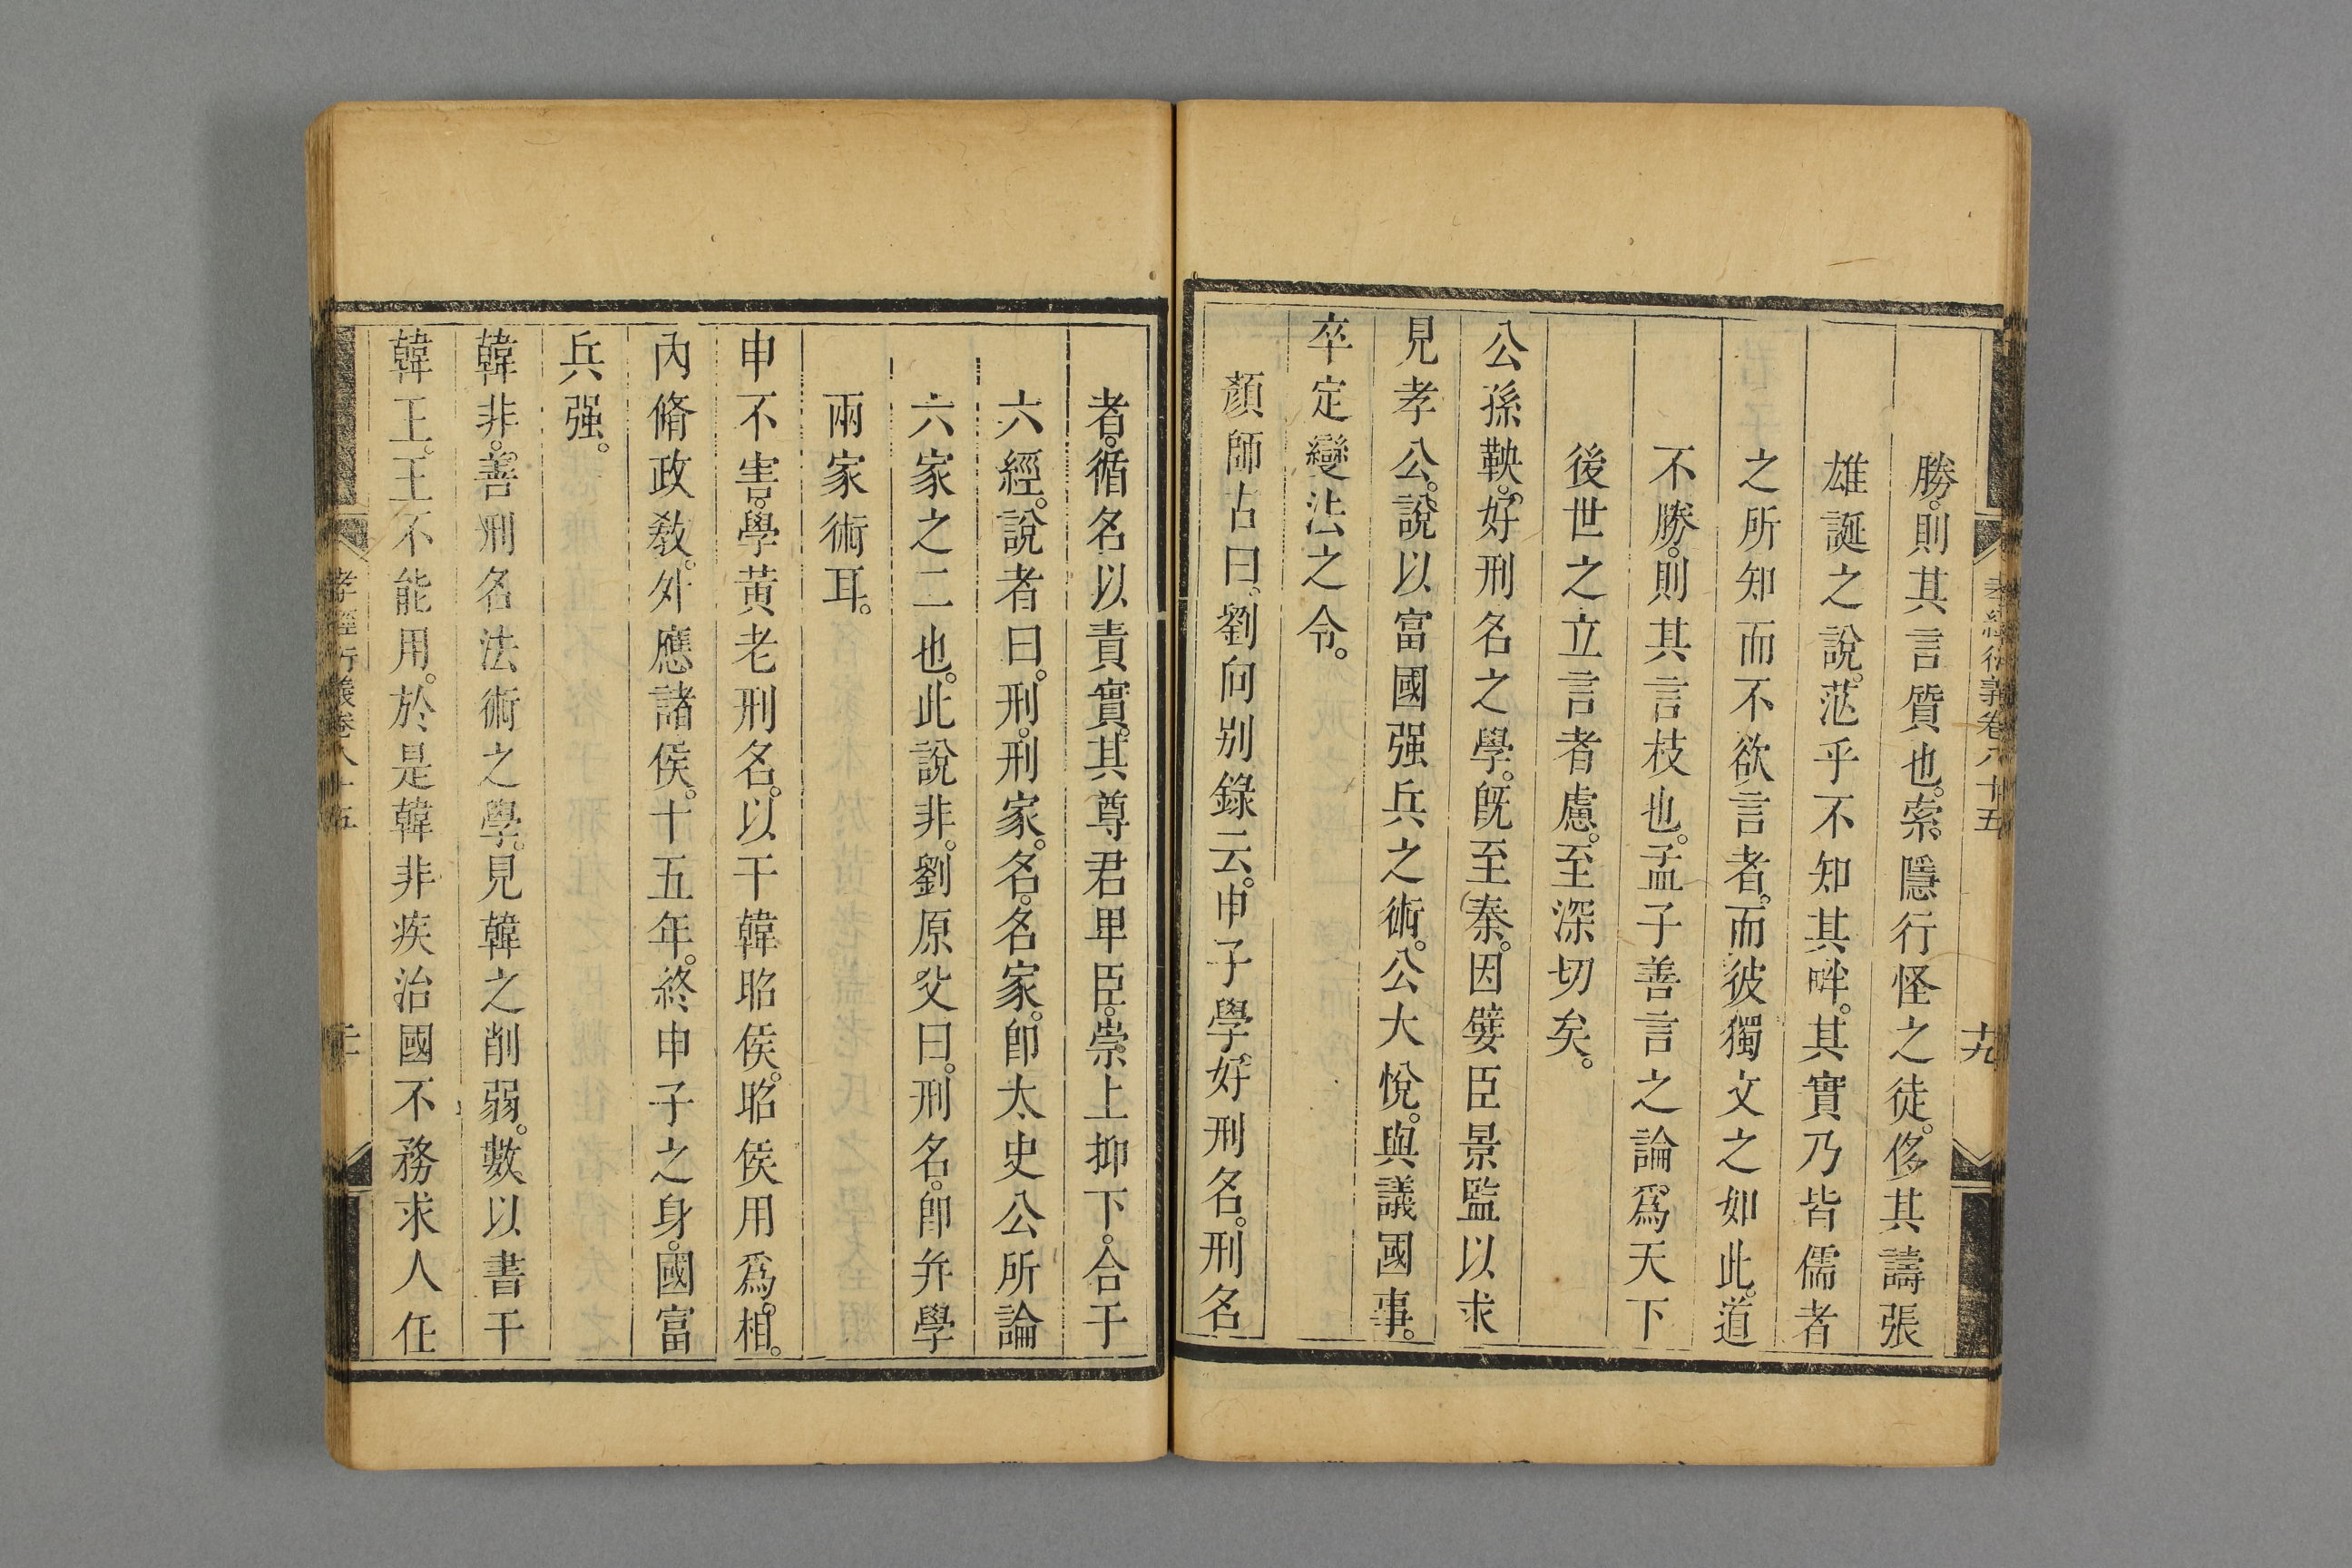 孝經衍義卷八十五　十九
勝。則其言質也。索隱行怪之徒。侈其譸張
雄誕之說。茫乎不知其畔。其實乃皆儒者
之所知而不欲言者。而彼獨文之如此。道
不勝。則其言枝也。孟子善言之論。爲天下
後世之立言者慮。至深切矣。
公孫鞅。好刑名之學。旣至秦。因嬖臣景監以求
見孝公。說以富國强兵之術。公大悅。與議國事。
卒定變法之令。
顏師古曰。劉向別錄云。申子學好刑名。刑名
者。循名以責實。其尊君卑臣。崇上抑下。合于
六經。說者曰。刑。刑家。名。名家。卽太史公所論
六家之二也。此說非。劉原父曰。刑名。卽弁學
兩家術耳。
申不害。學黃老刑名。以干韓昭侯。昭侯用爲。相。
內脩政教。外應諸侯。十五年。終申子之身。國富
兵强。
韓非。善刑名法術之學。見韓之削弱。數以書干
韓王。王不能用。於是韓非疾治國不務求人任
孝經衍義卷八十五　二十